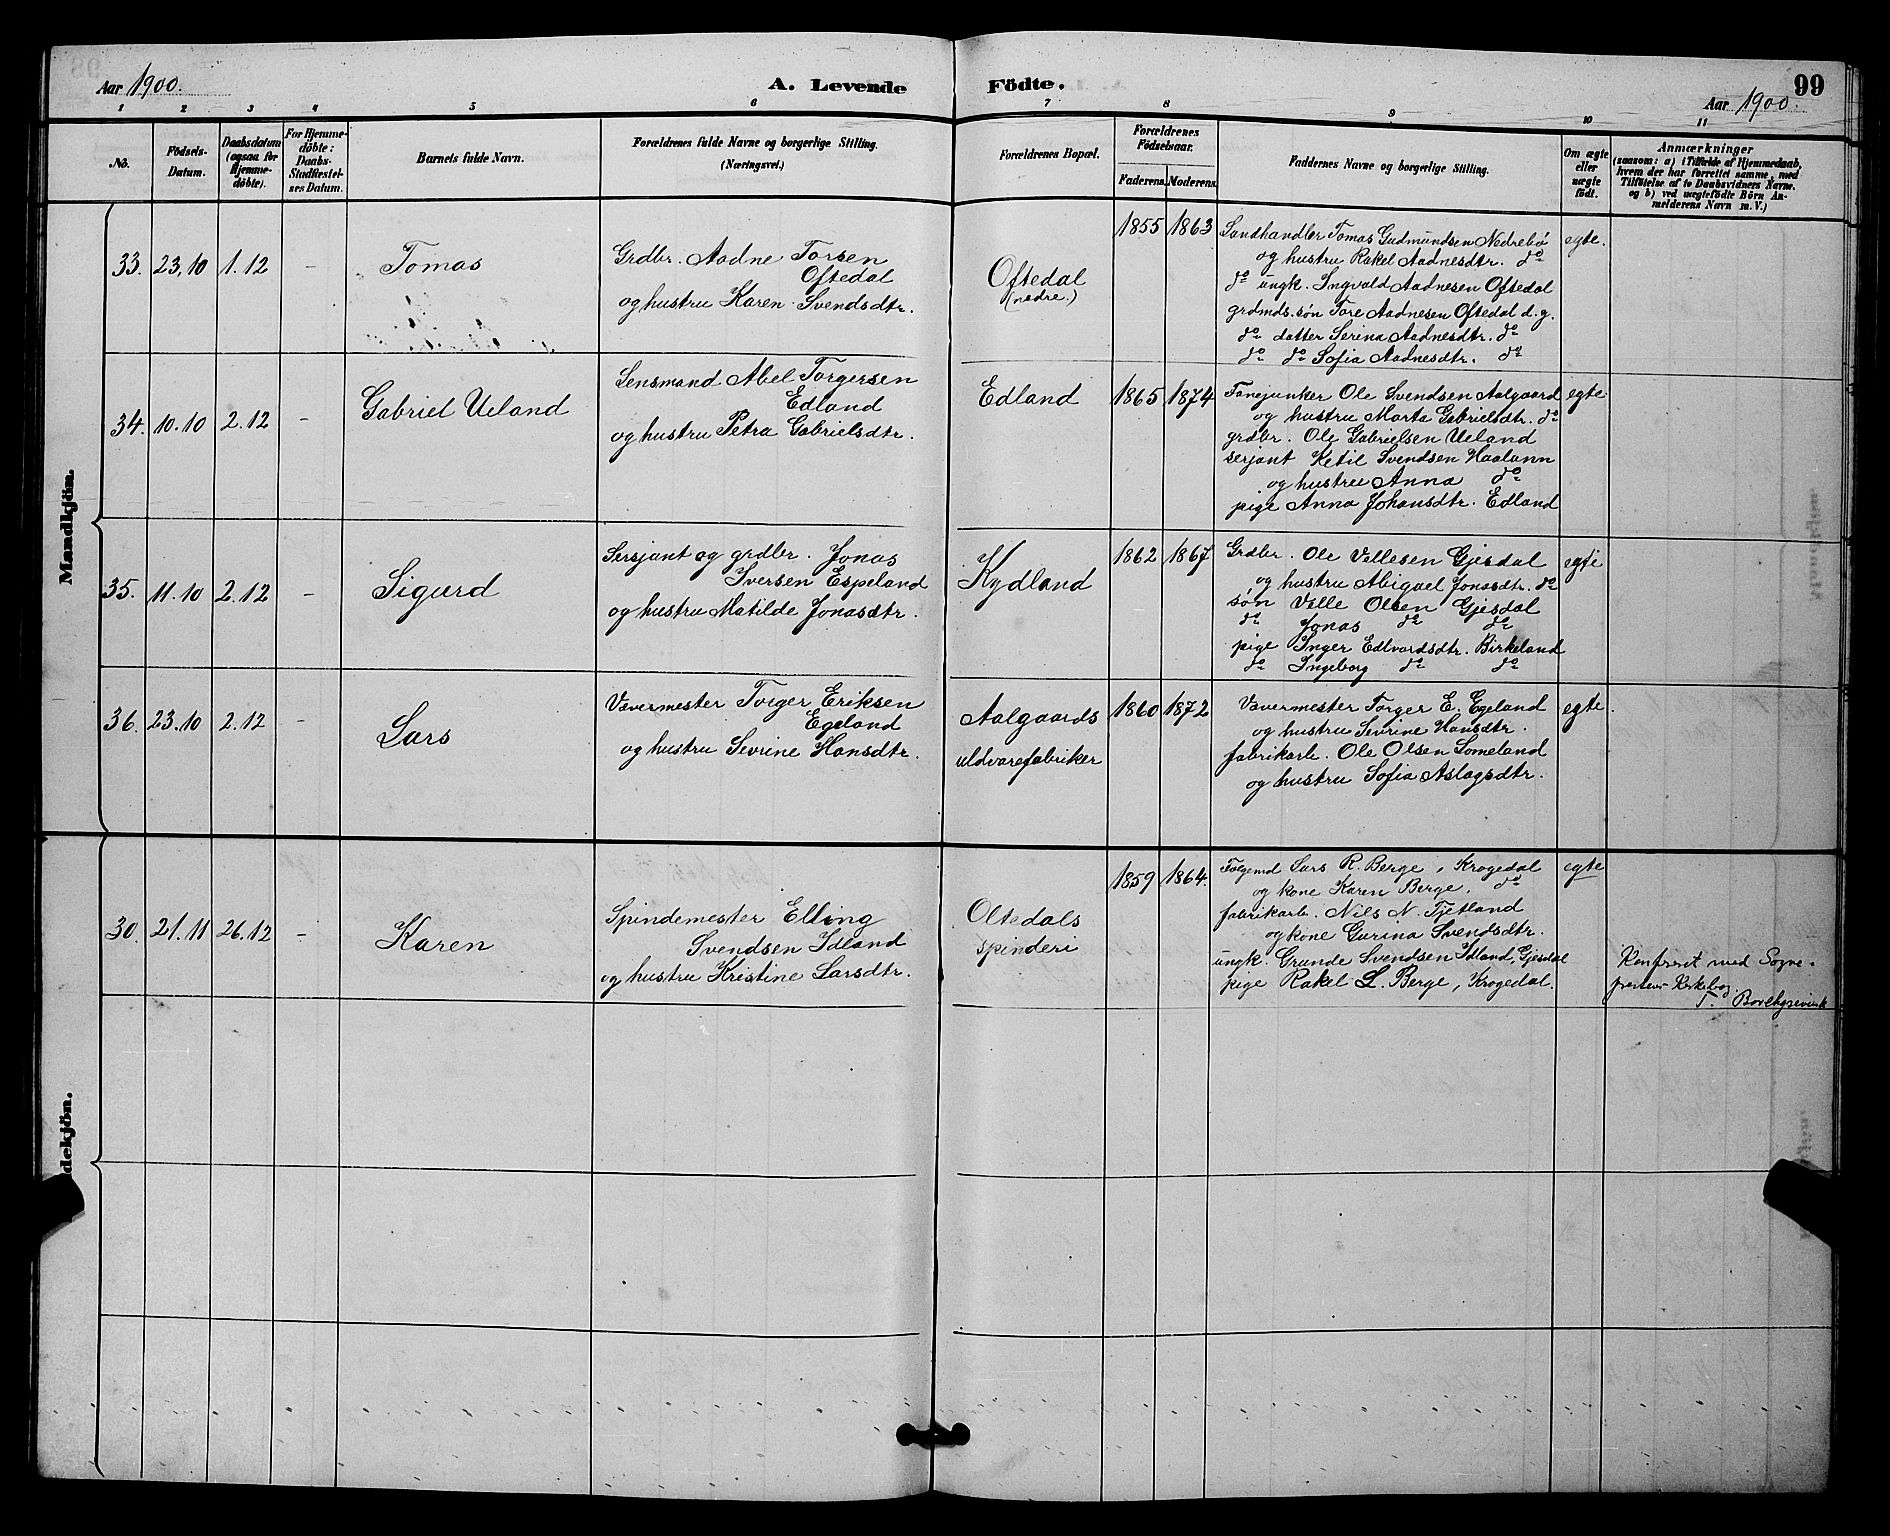 Aar 1900. A. Levende Födte. 99
Aar 1900.
1 2 3 4 5 6 7 8 9 10 11
No.
Födsels-
Datum.
Daabsdatum
(ogsaa for
Hjemme-
döbte).
For Hjemme-
döbte:
Daabs-
Stadfæstel-
ses Datum.
Barnets fulde Navn.
Forældrenes fulde Navne og borgerlige Stilling.
(Næringsvei.)
Forældrenes Bopæl.
Forældrenes
Födselsaar.
Faderens. Moderens.
Faddernes Navne og borgerlige Stilling.
Om ægte
eller
uægte
födt.
Anmærkninger
(saasom: a) i Tilfælde af Hjemmedaab,
hvem der har forrettet samme, med
Tilföielse af to Daabsvidners Navne.
og b) ved uægtefödte Börn An-
melderens Navn m. V.)
Mandkjön.
33. 23.10 1.12 – Tomas
Grdbr. Aadne Torsen
Oftedal
og hustru Karen Svendsdtr.
Oftedal
(nedre.)
1855 1863
Landhandler Tomas Gudmundsen Nedrebö
og hustru Rakel Aadnesdtr. do
do ungk. Ingvald Aadnesen Oftedal
grdmds. søn Tore Aadnesen Oftedal d.g.
do datter Serina Aadnesdtr. do
do do Sofia Aadnesdtr. do
egte.
34. 10.10 2.12 – Gabriel Ueland
Lensmand Abel Torgersen
Edland
og hustru Petra Gabrielsdtr.
Edland
1865 1874
Fanejunker Ole Svendsen Aalgaard
og hustru Marta Gabrielsdtr. do
grdbr. Ole Gabrielsen Ueland
serjant Ketil Svendsen Haalann
og hustru Anna do
pige Anna Johansdtr. Edland
egte
35. 11.10 2.12 – Sigurd
Sersjant og grdbr. Jonas
Iversen Espeland
og hustru Matilde Jonasdtr.
Kydland
1862 1867
Grdbr. Ole Vellesen Gjesdal
og hustru Abigael Jonasdtr. do
søn Velle Olsen Gjesdal
do Jonas do do
pige Inger Edvardsdtr. Birkeland
do Ingeborg do do
egte
36. 23.10 2.12 – Lars
Vævermester Torger Eriksen
Egeland
og hustru Sevrine Hansdtr.
Aalgaards
uldvarefabriker
1860 1872
Vævermester Torger E. Egeland
og hustru Sevrine Hansdtr.
fabrikarb. Ole Olsen Lomeland
og hustru Sofia Aslagsdtr.
egte
dekjön.
30. 21.11 26.12 – Karen
Spindemester Elling
Svendsen Idland
og hustru Kristine Larsdtr.
Oltedals
spinderi
1859 1864.
Folgemd Lars R. Berge, Krogedal
og kone Karen Berge, do
fabrikarb. Nils N. Tjetland
og kone Gurina Svendsdtr.
ungk. Grunde Svendsen Idland, Gjesdal
pige Rakel L. Berge, Krogedal.
egte
Konfereret med Sogne-
prestens Kirkebog.